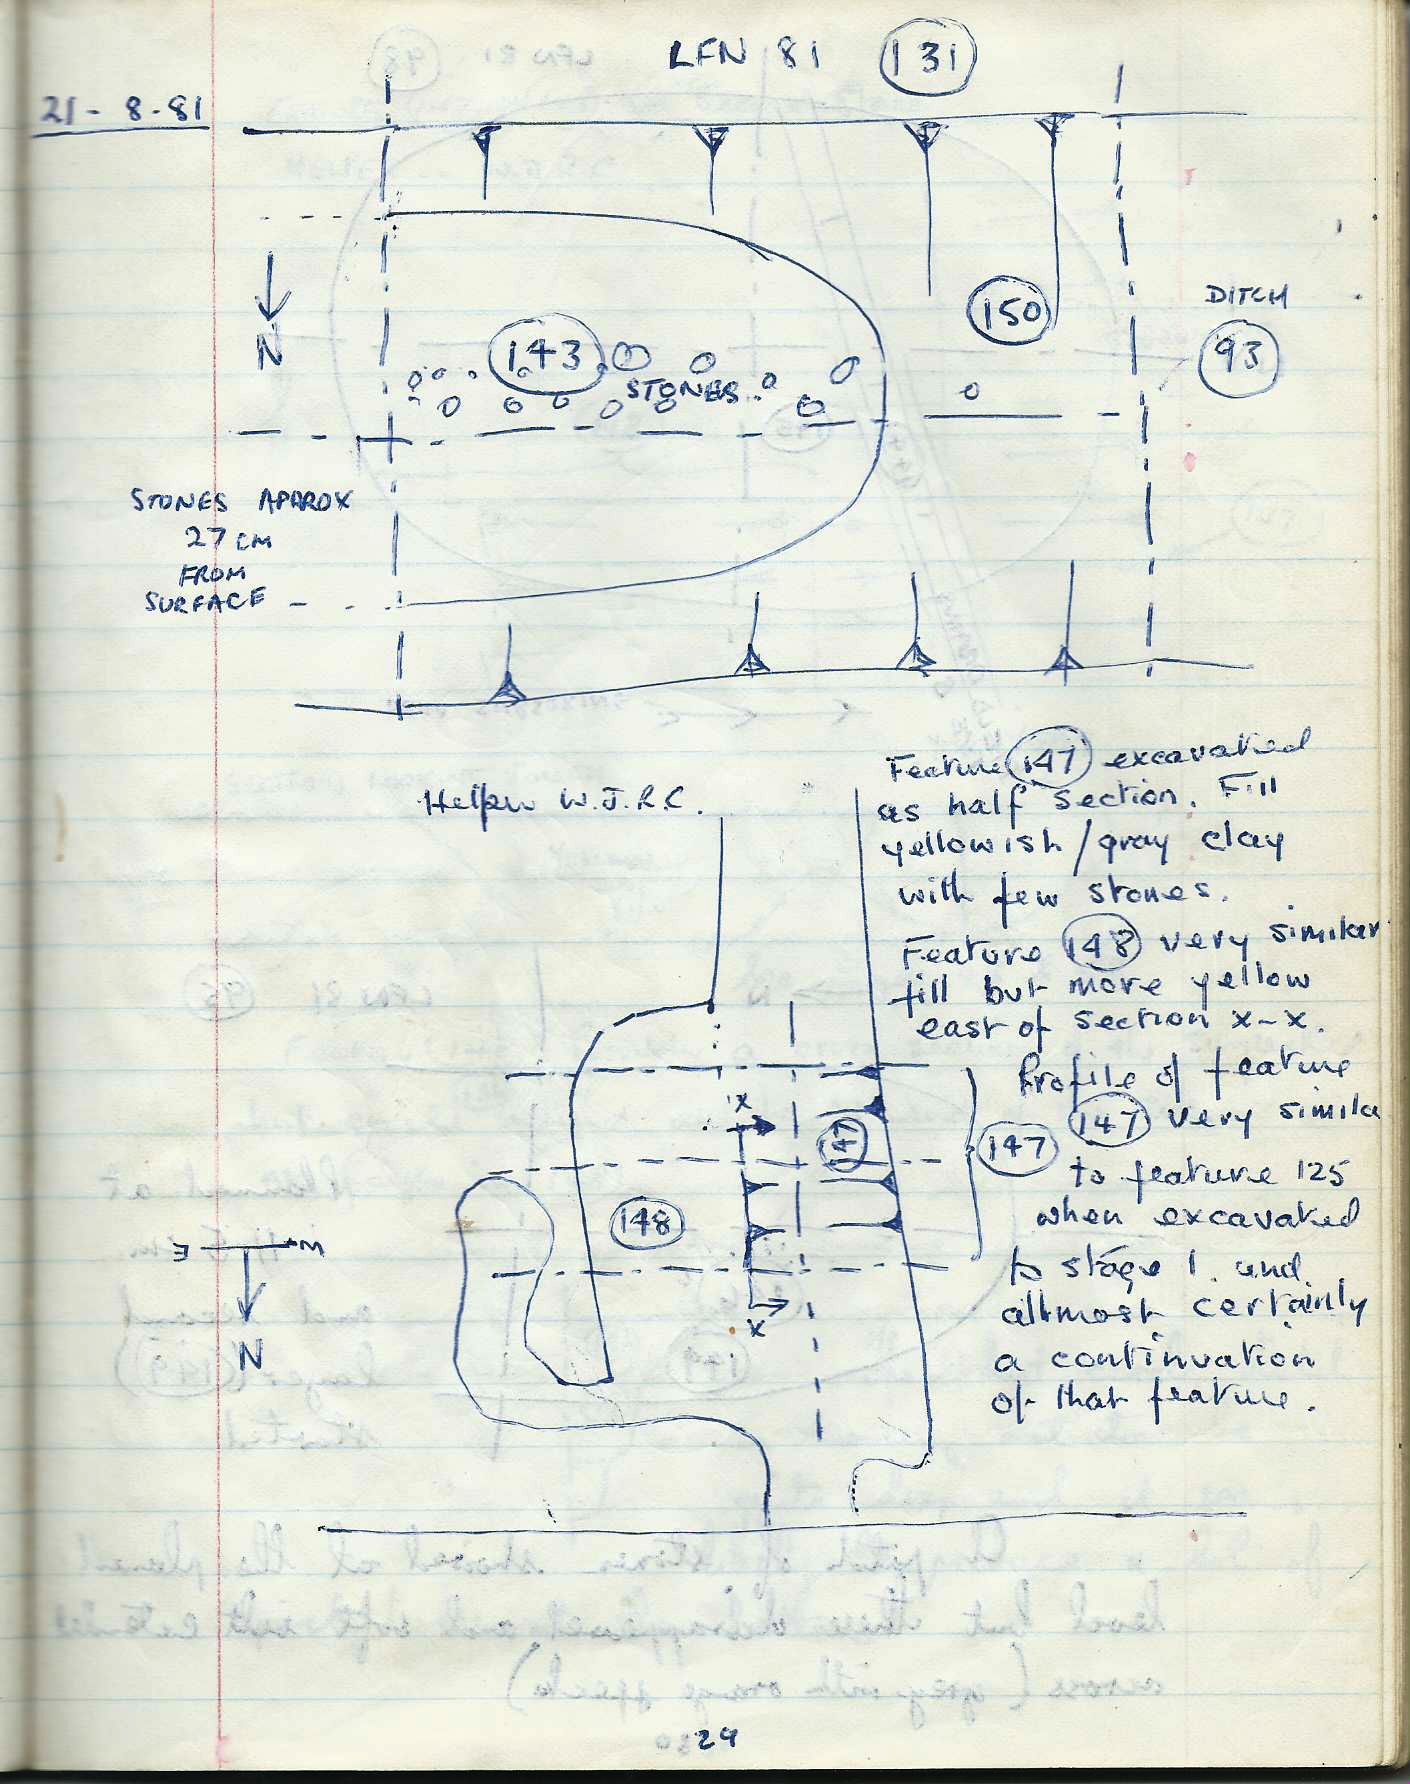 LFN 81 131
21-8-81
N
143
STONES
150
DITCH
93
STONES APPROX
27 CM
FROM
SURFACE
Helper W.J.R.C.
Feature 147 excavatied
as half section. Fill
yellowish/gray clay
with few stones.
Feature 148 very similar
fill but more yellow
east of section x-x.
Profile of feature
147 very simila
to feature 125
when excavated
to stage 1. and
allmost certainly
a continuation
of that feature.
x
147
147
148
x
E W
N
29